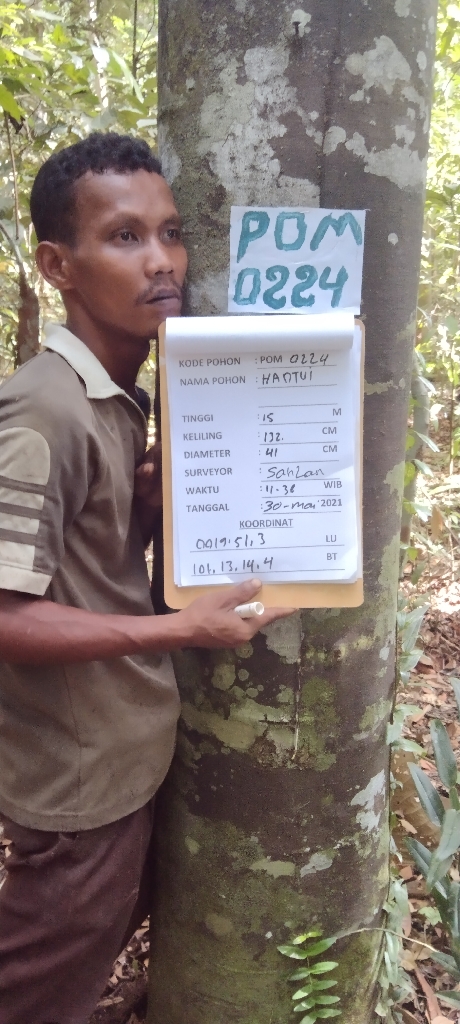 POM
0224
KODE POHON : POM 0224
NAMA POHON : HANTUI
TINGGI : 15 M
KELILING : 132. CM
DIAMETER : 41 CM
SURVEYOR :
WAKTU : 11-38 WIB
TANGGAL : 30-mei 2021
KOORDINAT
0019.51,3 LU
101,13,14,4 BT